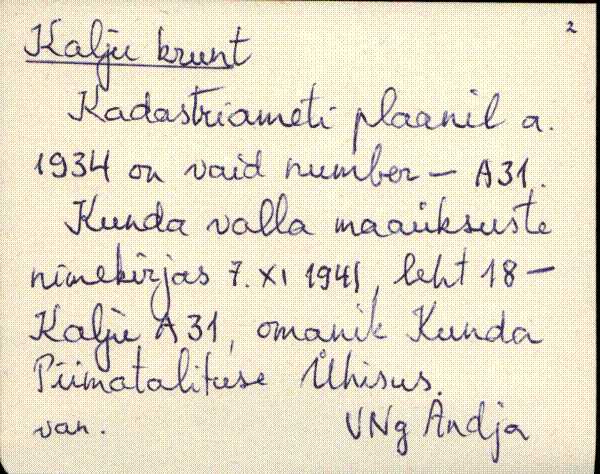 2
Kalju krunt
Kadastriameti plaanil a.
1934 on vaid number – A31.
Kunda valla maaüksuste
nimekirjas 7. XI 1941, leht 18 –
Kalju A31, omanik Kunda
Piimatalituse Ühisus.
van. VNg Andja